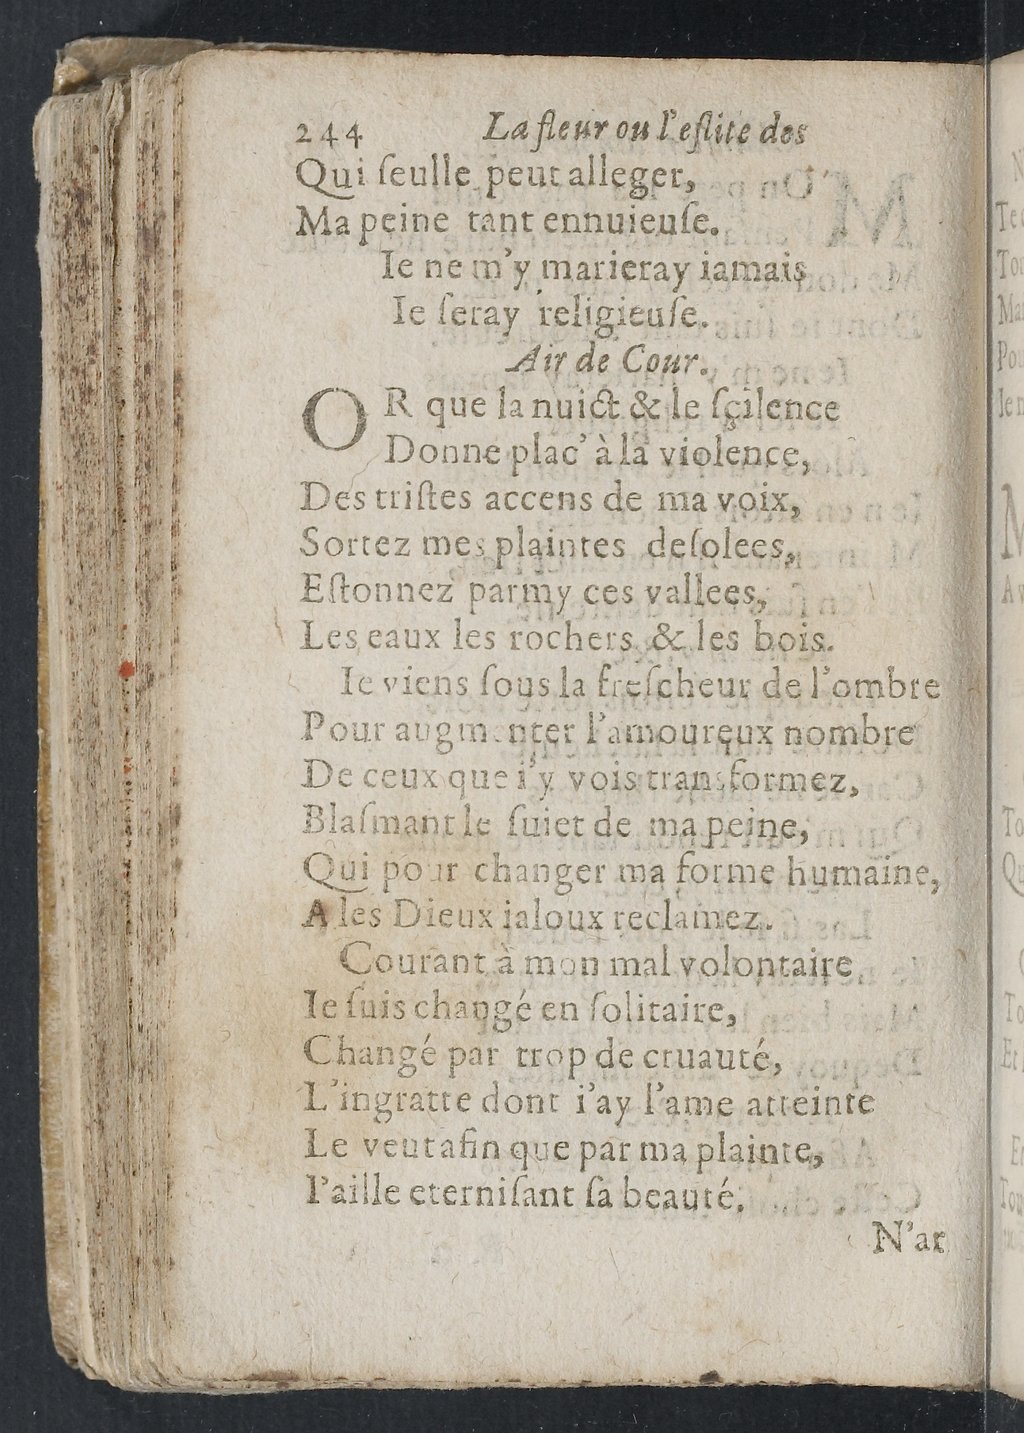 244 La fleur ou l'eslite des
Qui ſeulle peut alleger,
Ma peine tant ennuieuſe.
Ie ne m'y marieray iamais
Ie ſeray religieuſe.
Air de Cour.
OR que la nuict & le ſçilence
Donne plac' à la violence,
Des triſtes accens de ma voix,
Sortez mes plaintes deſolees,
Eſtonnez parmy ces vallees,
Les eaux les rochers & les bois.
Ie viens ſous la freſcheur de l'ombre
Pour augmenter l'amoureux nombre
De ceux que i'y vois transformez,
Blaſmant le ſuiet de ma peine,
Qui pour changer ma forme humaine,
A les Dieux ialoux reclamez.
Courant à mon mal volontaire
Ie ſuis changé en ſolitaire,
Changé par trop de cruauté,
L'ingratte dont i'ay l'ame atteinte
Le veut afin que par ma plainte,
I'aille eterniſant ſa beauté.
N'ar